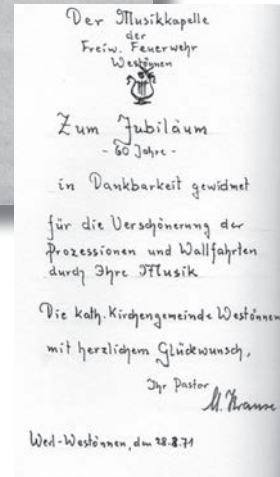 Der Musikkapelle
der
Freiw. Feuerwehr
Westönnen
Zum Jubiläum
- 60 Jahre -
in Dankbarkeit gewidmet
für die Verschönerung der
Prozessionen und Wallfahrten
durch Ihre Musik
Die kath. Kirchengemeinde Westönnen
mit herzlichem Glückwunsch,
Ihr Pastor
M. Krause
Werl-Westönnen, den 28.8.71